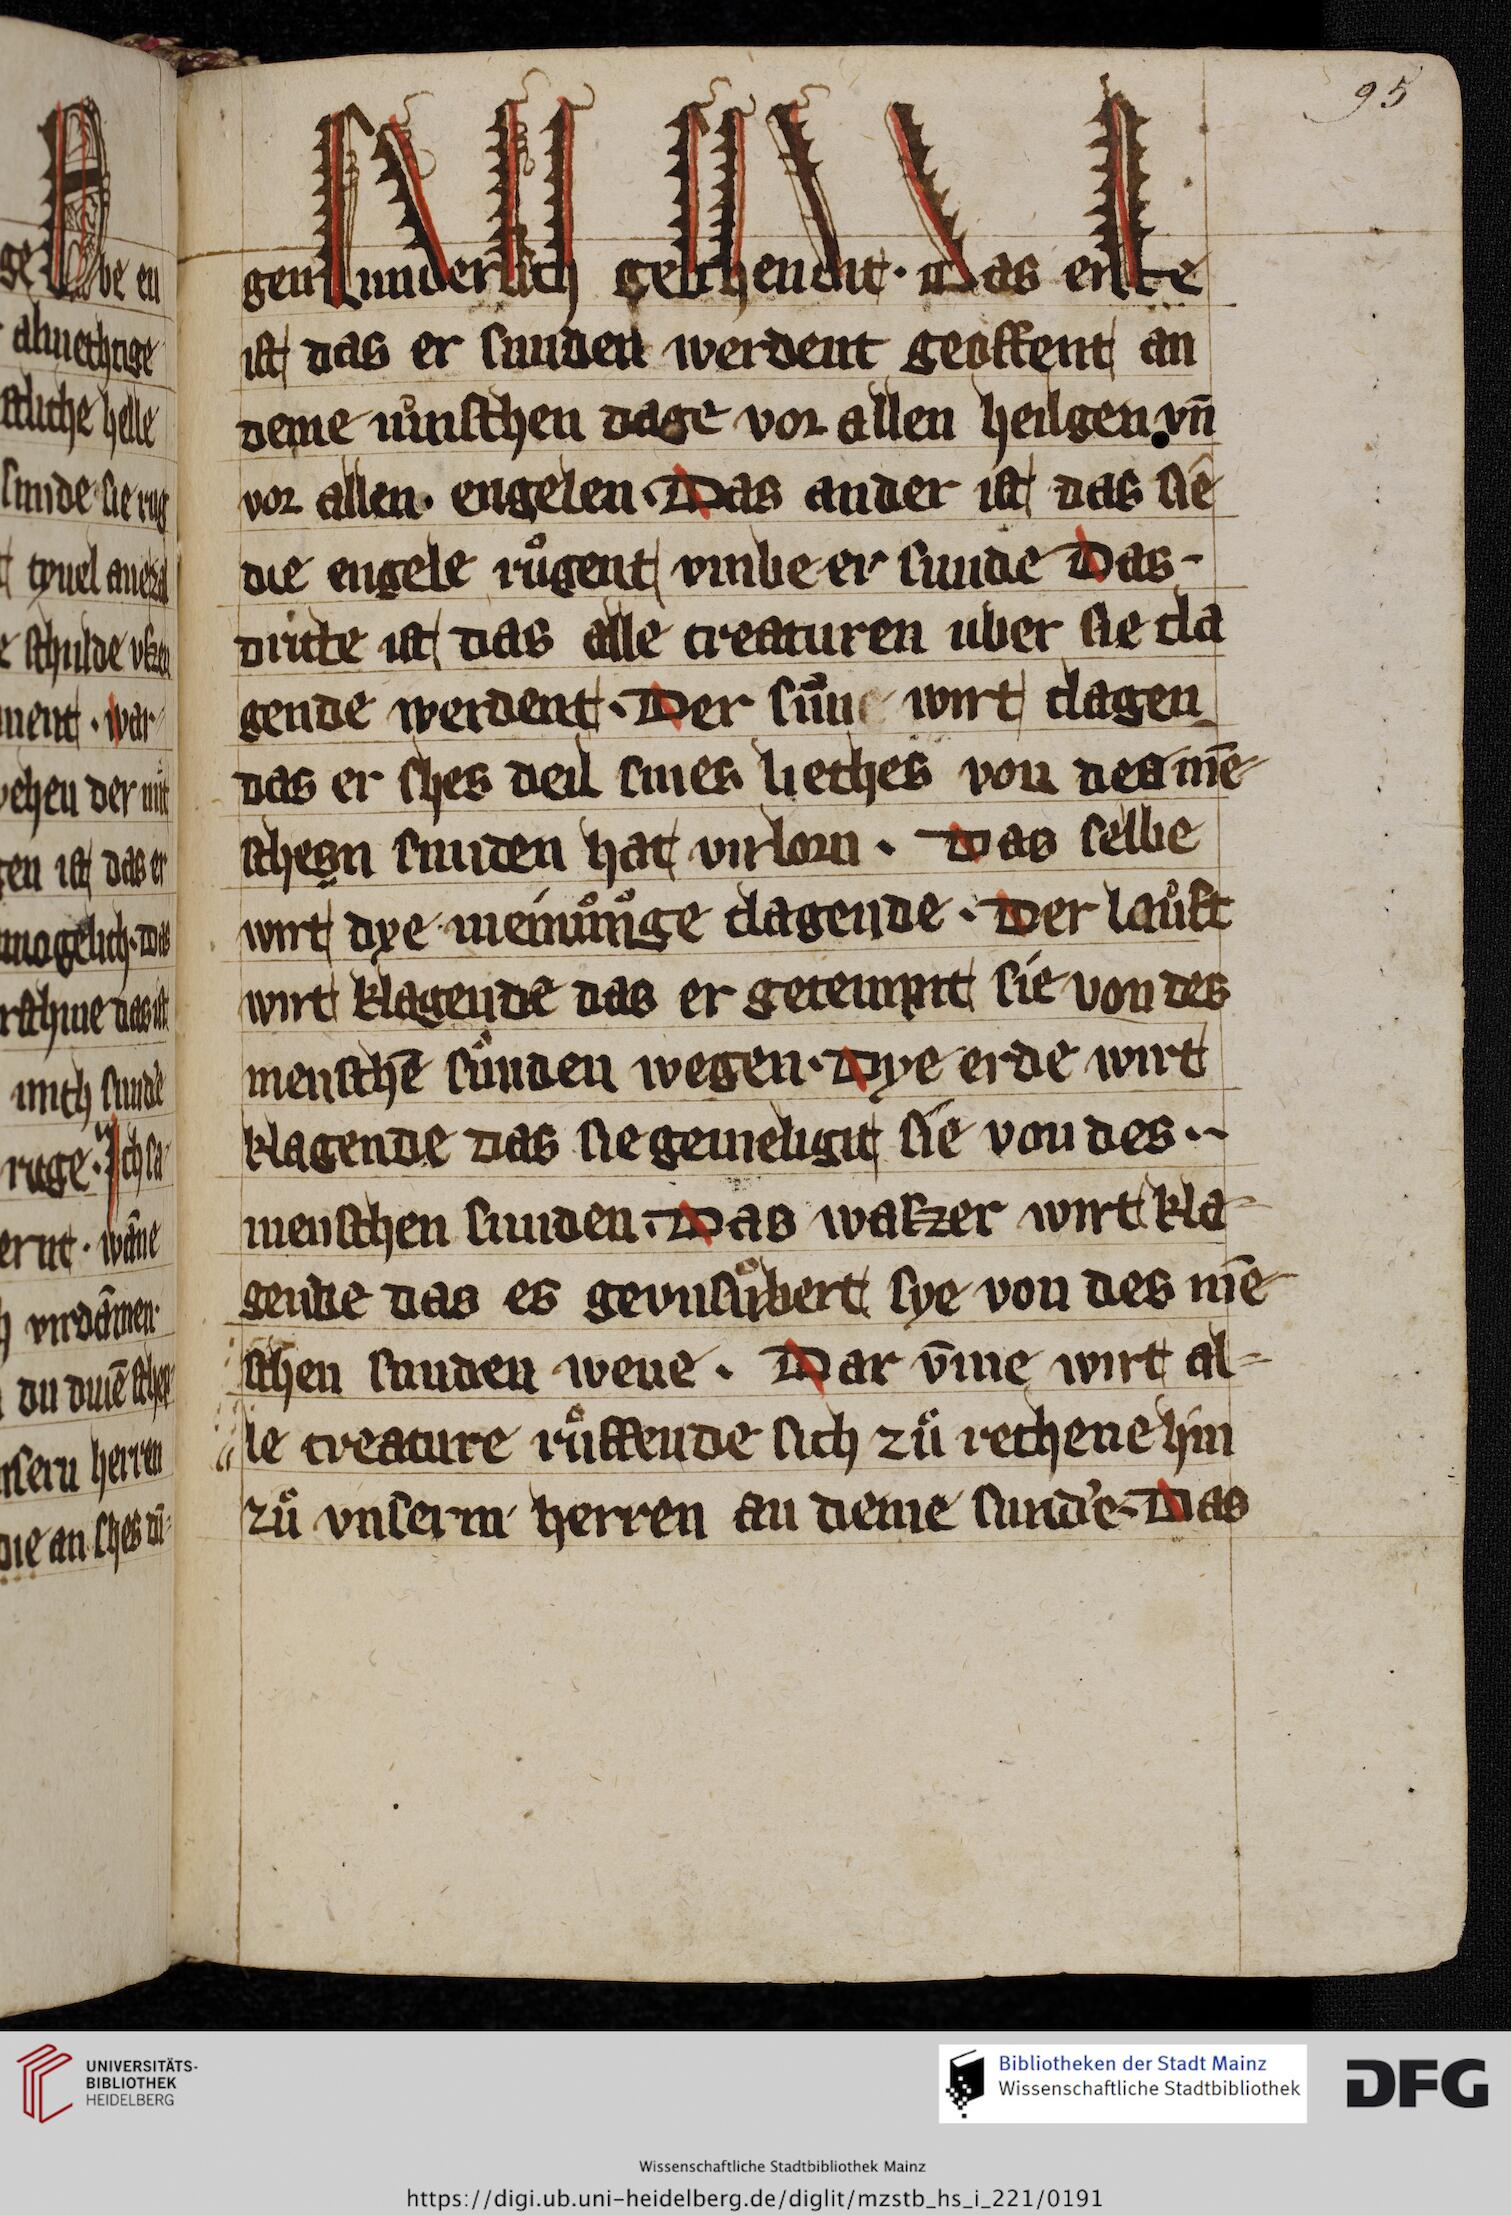 95
gen sunderlich geschendit · Das erste
ist das er sunden werdent geoffent an
deme iuͦnschen dage vor allen heilgen vn̄
vor allen · engelen · Das ander ist das sie
die engele ruͦgent vmbe er sunde Das -
dritte ist das alle creaturen uber sie cla
gende werdent · Der wirt clagen
das er sches deil sines liethes von des mē
schesn sunden hat virlorn · Das selbe
wirt dye clagende · Der lauͦft
wirt klagende das er getemprit sie von des
menschē suͦnden wegen · Dye erde wirt
klagende das sie gemeligit sie von des ··
menschen sunden · Das waszer wirt kla-
gende das es gevnsuͦbert sye von des mē-
schen sunden wene · Dar v̄me wirt al=
le creature ruͦffende sich zuͦ rechene hin
zuͦ vnserm herren an deme sunde · Das
be en
almechtige
helle
sunde sie rug
schulde
ment · war
gen ist das er
mogelich · Das
mich sunde
ruge · Ich sa
virdāmen ·
herren
die an sches
UNIVERSITÄTS-
BIBLIOTHEK
HEIDELBERG
Bibliotheken der Stadt Mainz
Wissenschaftliche Stadtbibliothek
DFG
Wissenschaftliche Stadtbibliothek Mainz
https://digi.ub.uni-heidelberg.de/diglit/mzstb_hs_i_221/0191